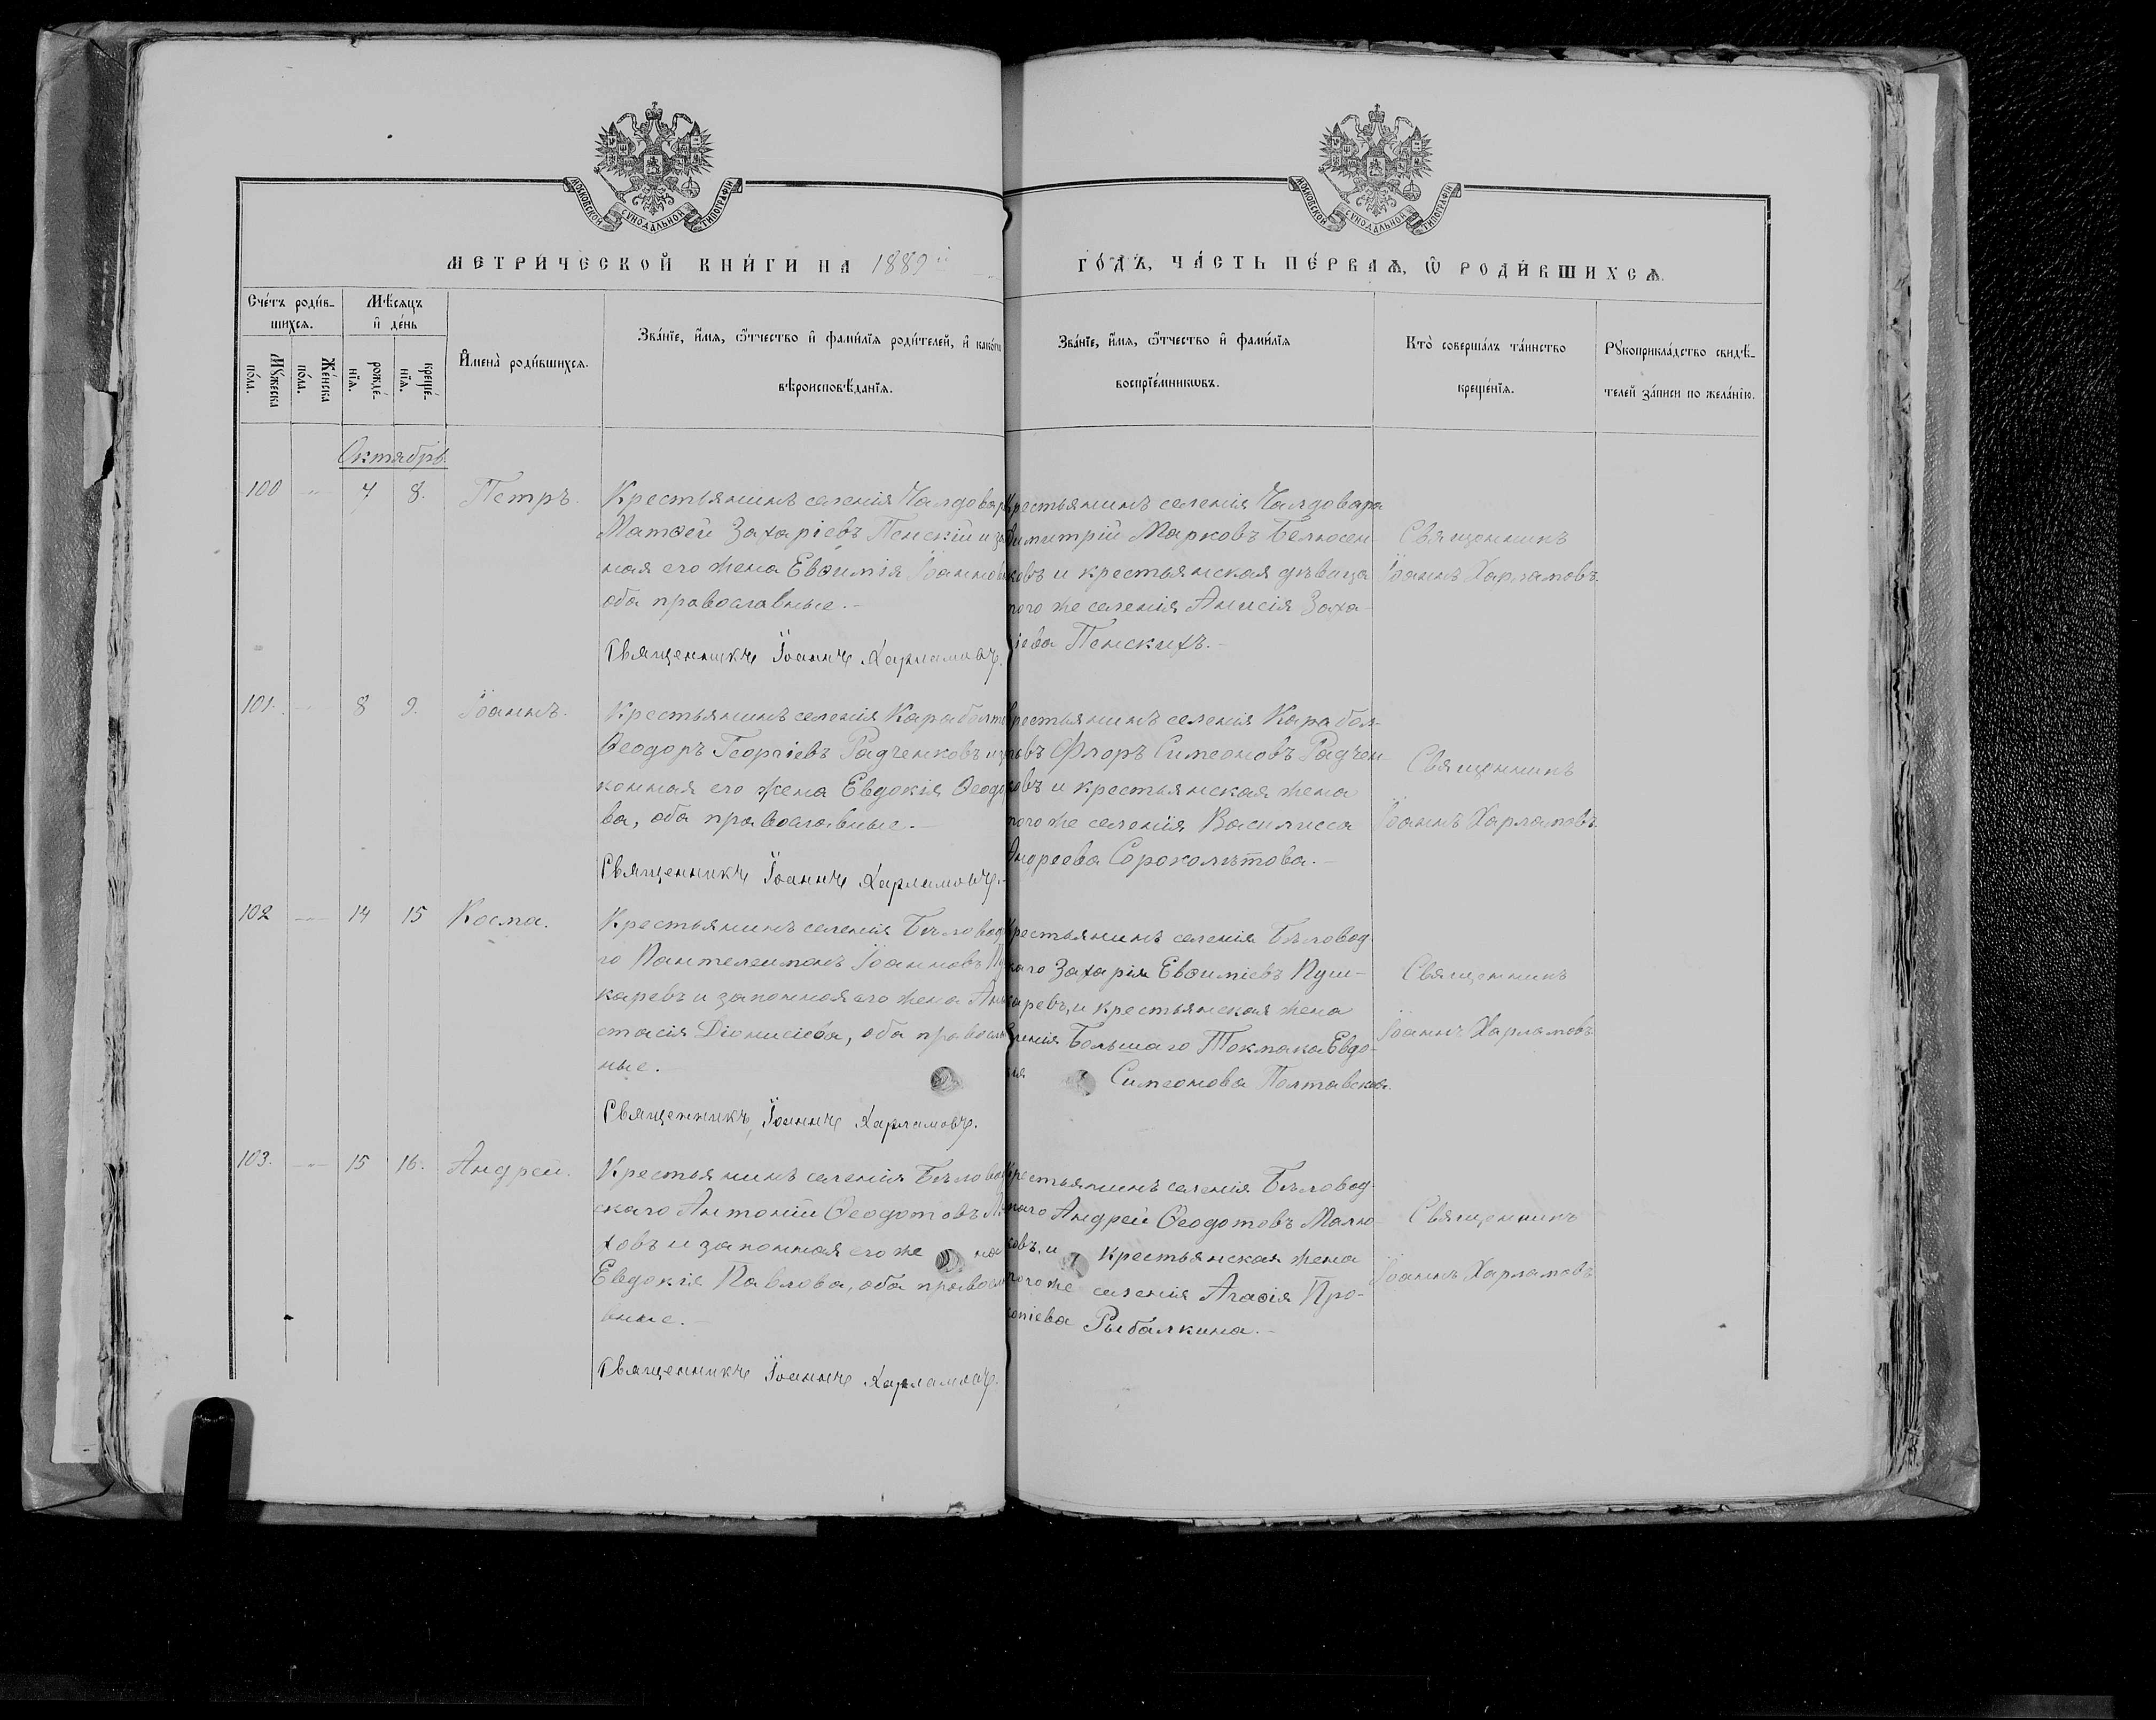 МОСКОВСКОЙ СѴНОДАЛЬНОЙ ТИПОГРАФІИ
МОСКОВСКОЙ СѴНОДАЛЬНОЙ ТИПОГРАФІИ
МЕТРИ́ЧЕСКОЙ КНИ́ГИ НА 1889й
ГО́ДЪ, ЧА́СТЬ ПЕ́РВАѦ, Ѿ РОДИ́ВШИХСѦ.
Сче́тъ роди́в-
шихсѧ.
Мꙋ́жеска
по́ла.
Же́нска
по́ла.
Мѣ́сѧцъ
и҆ де́нь
рожде́-
нїѧ.
креще́-
нїѧ.
И҆мена̀ роди́вшихсѧ.
Зва́нїе, и҆́мѧ, ѻ҆́тчество и҆ фами́лїѧ роди́телей, и҆ како́гѡ
вѣроисповѣ́данїѧ.
Зва́нїе, и҆́мѧ, ѻ҆́тчество и҆ фами́лїѧ
воспрїе́мникѡвъ.
Кто̀ соверша́лъ та́инство
креще́нїѧ.
Рꙋкоприкла́дство свидѣ́-
телей за́писи по жела́нїю.
Октябрь
100 " 7 8. Петръ.
Крестьянинъ селенія Чалдовар
Матѳей Захаріевъ Пенскій и за
ная его жена Евѳимія Іоаннов
оба православные.-
Священникъ Іоаннъ Харламовъ.
Крестьянинъ селенія Чалдовара
Димитрій Марковъ Белюсен-
ковъ и крестьянская дѣвица
того же селенія Анисія Заха-
ріева Пенскихъ.-
Священникъ
Іоаннъ Харламовъ.
101. " 8 9. Іоаннъ.
Крестьянинъ селенія Караболто
Ѳеодоръ Георгіевъ Радченковъ и за
конная его жена Евдокія Ѳеодо
ва, оба православные.-
Священникъ Іоаннъ Харламовъ.-
Крестьянинъ селенія Карабол-
товъ Флоръ Симеоновъ Радчен-
ковъ и крестьянская жена
того же селенія Василисса
Андреева Сороколѣтова.-
Священникъ
Іоаннъ Харламовъ.
102 " 14 15 Косма.
Крестьянинъ селенія Бѣловод
го Пантелеимонъ Іоанновъ Пу
каревъ и законная его жена Ана
стасія Діонисіева, оба правосла
ные.-
Священникъ Іоаннъ Харламовъ.
Крестьянинъ селенія Бѣловод-
скаго Захарія Евѳиміевъ Пуш-
каревъ, и крестьянская жена
селенія Большаго Токмака Евдо-
кія Симеонова Полтавская.
Священникъ
Іоаннъ Харламовъ
103. " 15 16. Андрей.
Крестьянинъ селенія Бѣловод
скаго Антоній Ѳеодотовъ
ховъ и законная его же на
Евдокія Павлова, оба правосла
вные.-
Священникъ Іоаннъ Харламовъ.
Крестьянинъ селенія Бѣловод-
скаго Андрей Ѳеодотовъ Малю-
ковъ, и крестьянская жена
того же селенія Агаѳія Про-
копіева Рыбалкина.-
Священникъ
Іоаннъ Харламовъ